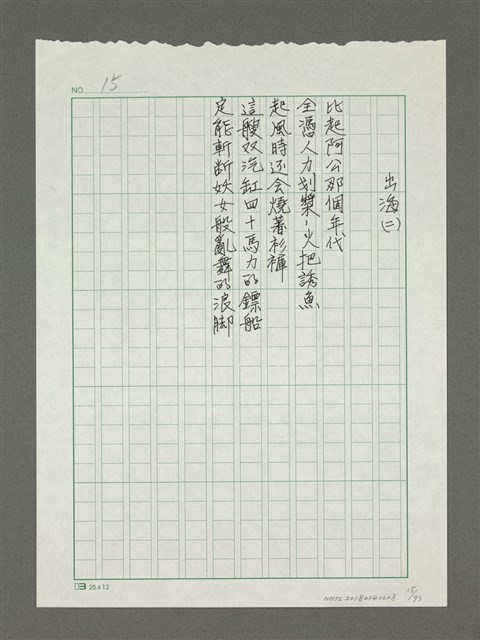 NO. 15
出海(二)
比起阿公那個年代
全憑人力划槳,火把誘魚
起風時还会燒著衫褲
這艘双汽缸四十馬力的鏢船
定能斬断妖女般亂舞的浪脚
25 x 12
NMTL20180120628
15/93